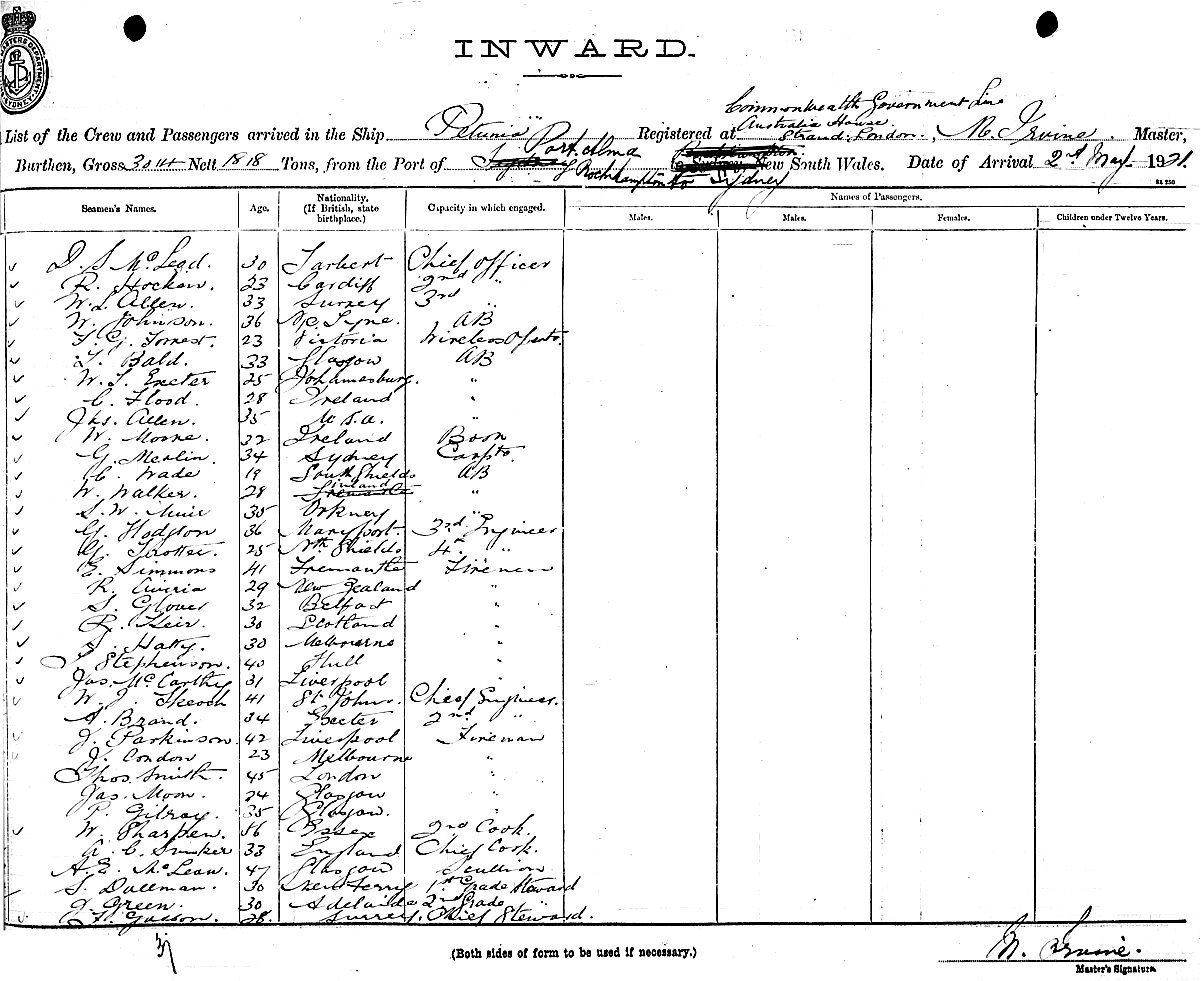 INWARD.
Commonwealth Government Line
Australia House
List of the Crew and Passengers arrived in the Ship Petunia Registered at Strand. London. , M. Irvine. Master,
Port Alma
Burthen, Gross 3014 Nett 1818 Tons, from the Port of Sydney New South Wales. Date of Arrival 2nd May 1921.
Rockhampton to Sydney
Seamen's Names. Age. Nationality. (If British, state birthplace.) Capacity in which engaged. Names of Passengers.
Males. Males. Females. Children under Twelve Years.
D. S. McLead. 30 Tarbert Chief Officer
R. Hocken. 23 Cardiff 2nd "
W. L. Allen. 33 Surrey 3rd "
W. Johnson. 36 N/c. Tyne. AB
F. G. Forrest. 23 Victoria Wireless
T. Bald. 33 Glasgow AB
W. T. Exeter 25 Johannesburg. "
C. Flood. 28 Ireland "
Jas. Allen. 35 U.S.A. "
W. Moore. 32 Ireland Bosn
G. Merlin. 34 Sydney
C. Wade 19 South Shields AB
W. Walker. 28 Finland Fremantle "
S. W. Muir 35 Orkney "
G. Hodgson 36 Maryport. 3rd Engineer
G. Trotter. 25 Nth Shields 4th "
E. Simmons 41 Fremantle Fireman
R. 29 New Zealand "
S. Glover 32 Belfast "
R. Keir. 30 Scotland "
Hatty. 30 Melbourne "
J. Stephenson. 40 Hull "
Jas. McCarthy 31 Liverpool "
W. J. Skeoch 41 St Johns. Chief Engineer.
A. Brand. 34 Exeter 2nd "
J. Parkinson. 42 Liverpool Fireman
J. Condon 23 Melbourne "
Thos. Smith. 45 London "
Jas. Moon. 24 Glasgow "
P. Gilroy. 35 Glasgow. "
W. Sharpen. 56 Essex 2nd Cook.
A. C. 33 England Chief Cook.
A. E. McLean. 47 Glasgow Scullion
S. Dullman. 30 New Ferry 1st Grade Steward
J. Green. 30 Adelaide 2nd Grade "
Gasson. 28. Surrey Chief Steward.
37
(Both sides of form to be used if necessary.)
M. Irvine.
Master's Signature.